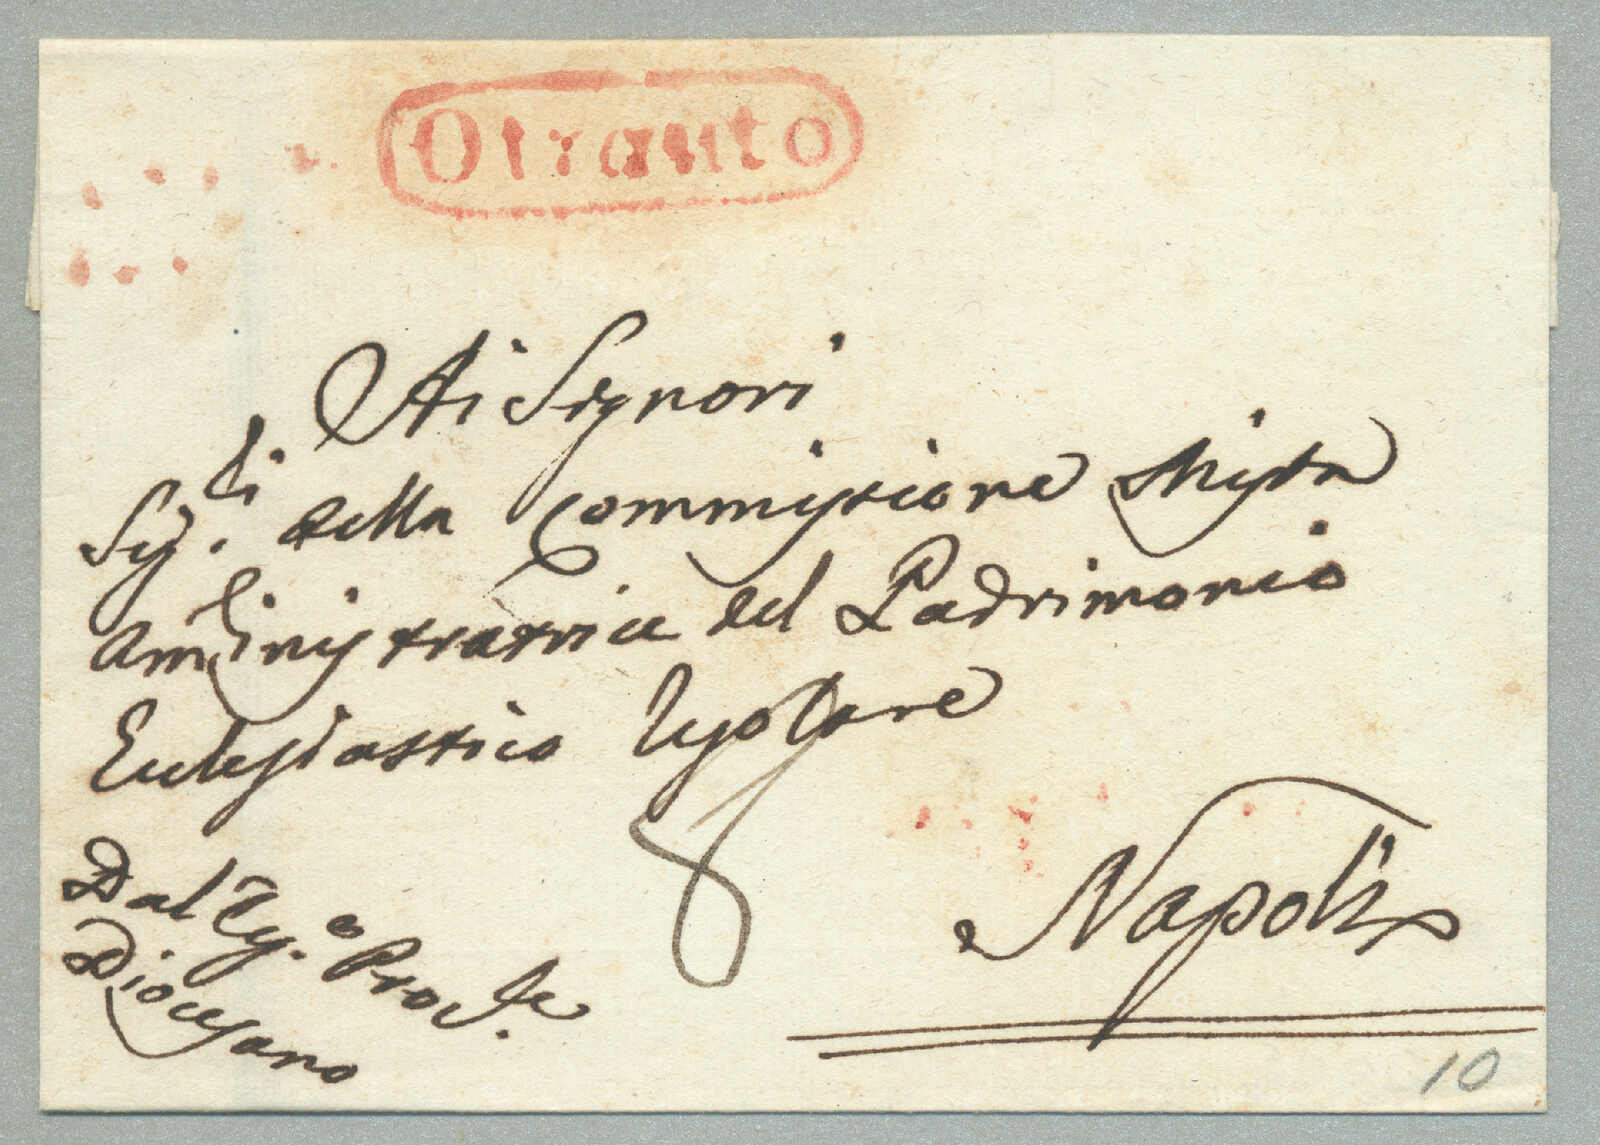 Otranto
Ai Signori
Sig.di della Commissione Mista
Amministratrice del Padrimonio
Ecclesiastico Regolare
8
Napoli
Dal Reg.o Proc.re
Diocesano
10